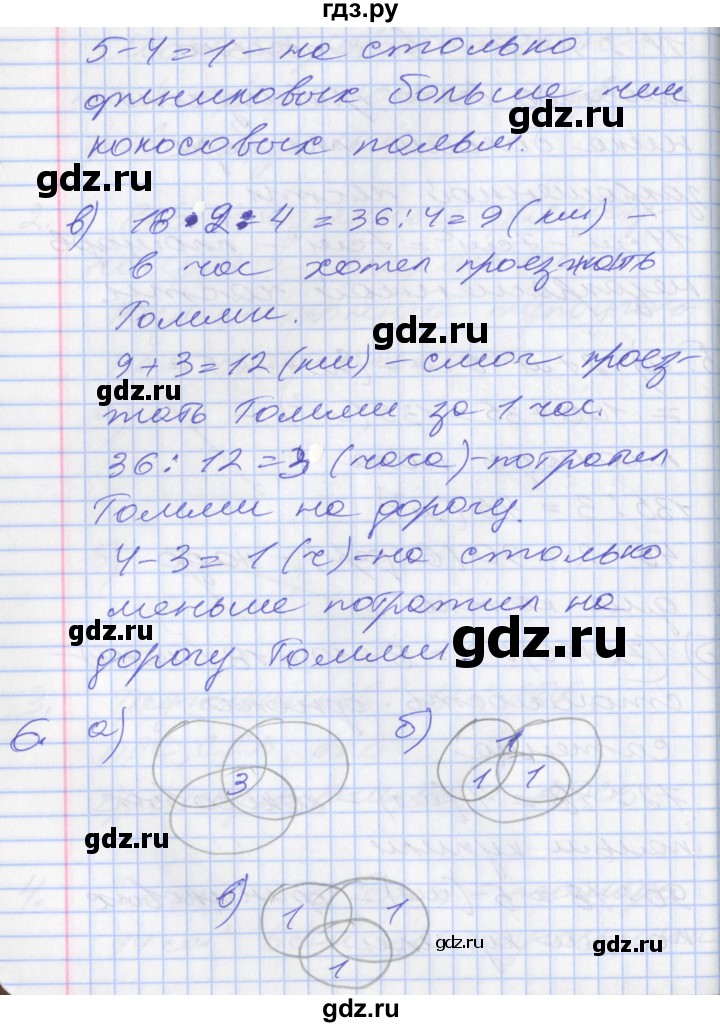 гдз.ру
5-4=1 - на столько
финиковых больше чем
кокосовых пальм.
gdz.ru
gdz.ru
в) 18•2:4 = 36:4=9 (км) -
в час хотел проезжать
Томми.
gdz.ru
9+3=12 (км) - смог проез-
gdz.ru
жать Томми за 1 час.
36:12=3 (часа) - потратил
Томми на дорогу.
gdz.ru
4-3=1 (ч) - на столько
меньше потратил на
gdz.ru
gdz.ru
дорогу Томми.
6. а) б)
1
3 1 1
gdz.ru
в) 1 1
1
gdz.ru
gdz.ru
gdz.ru